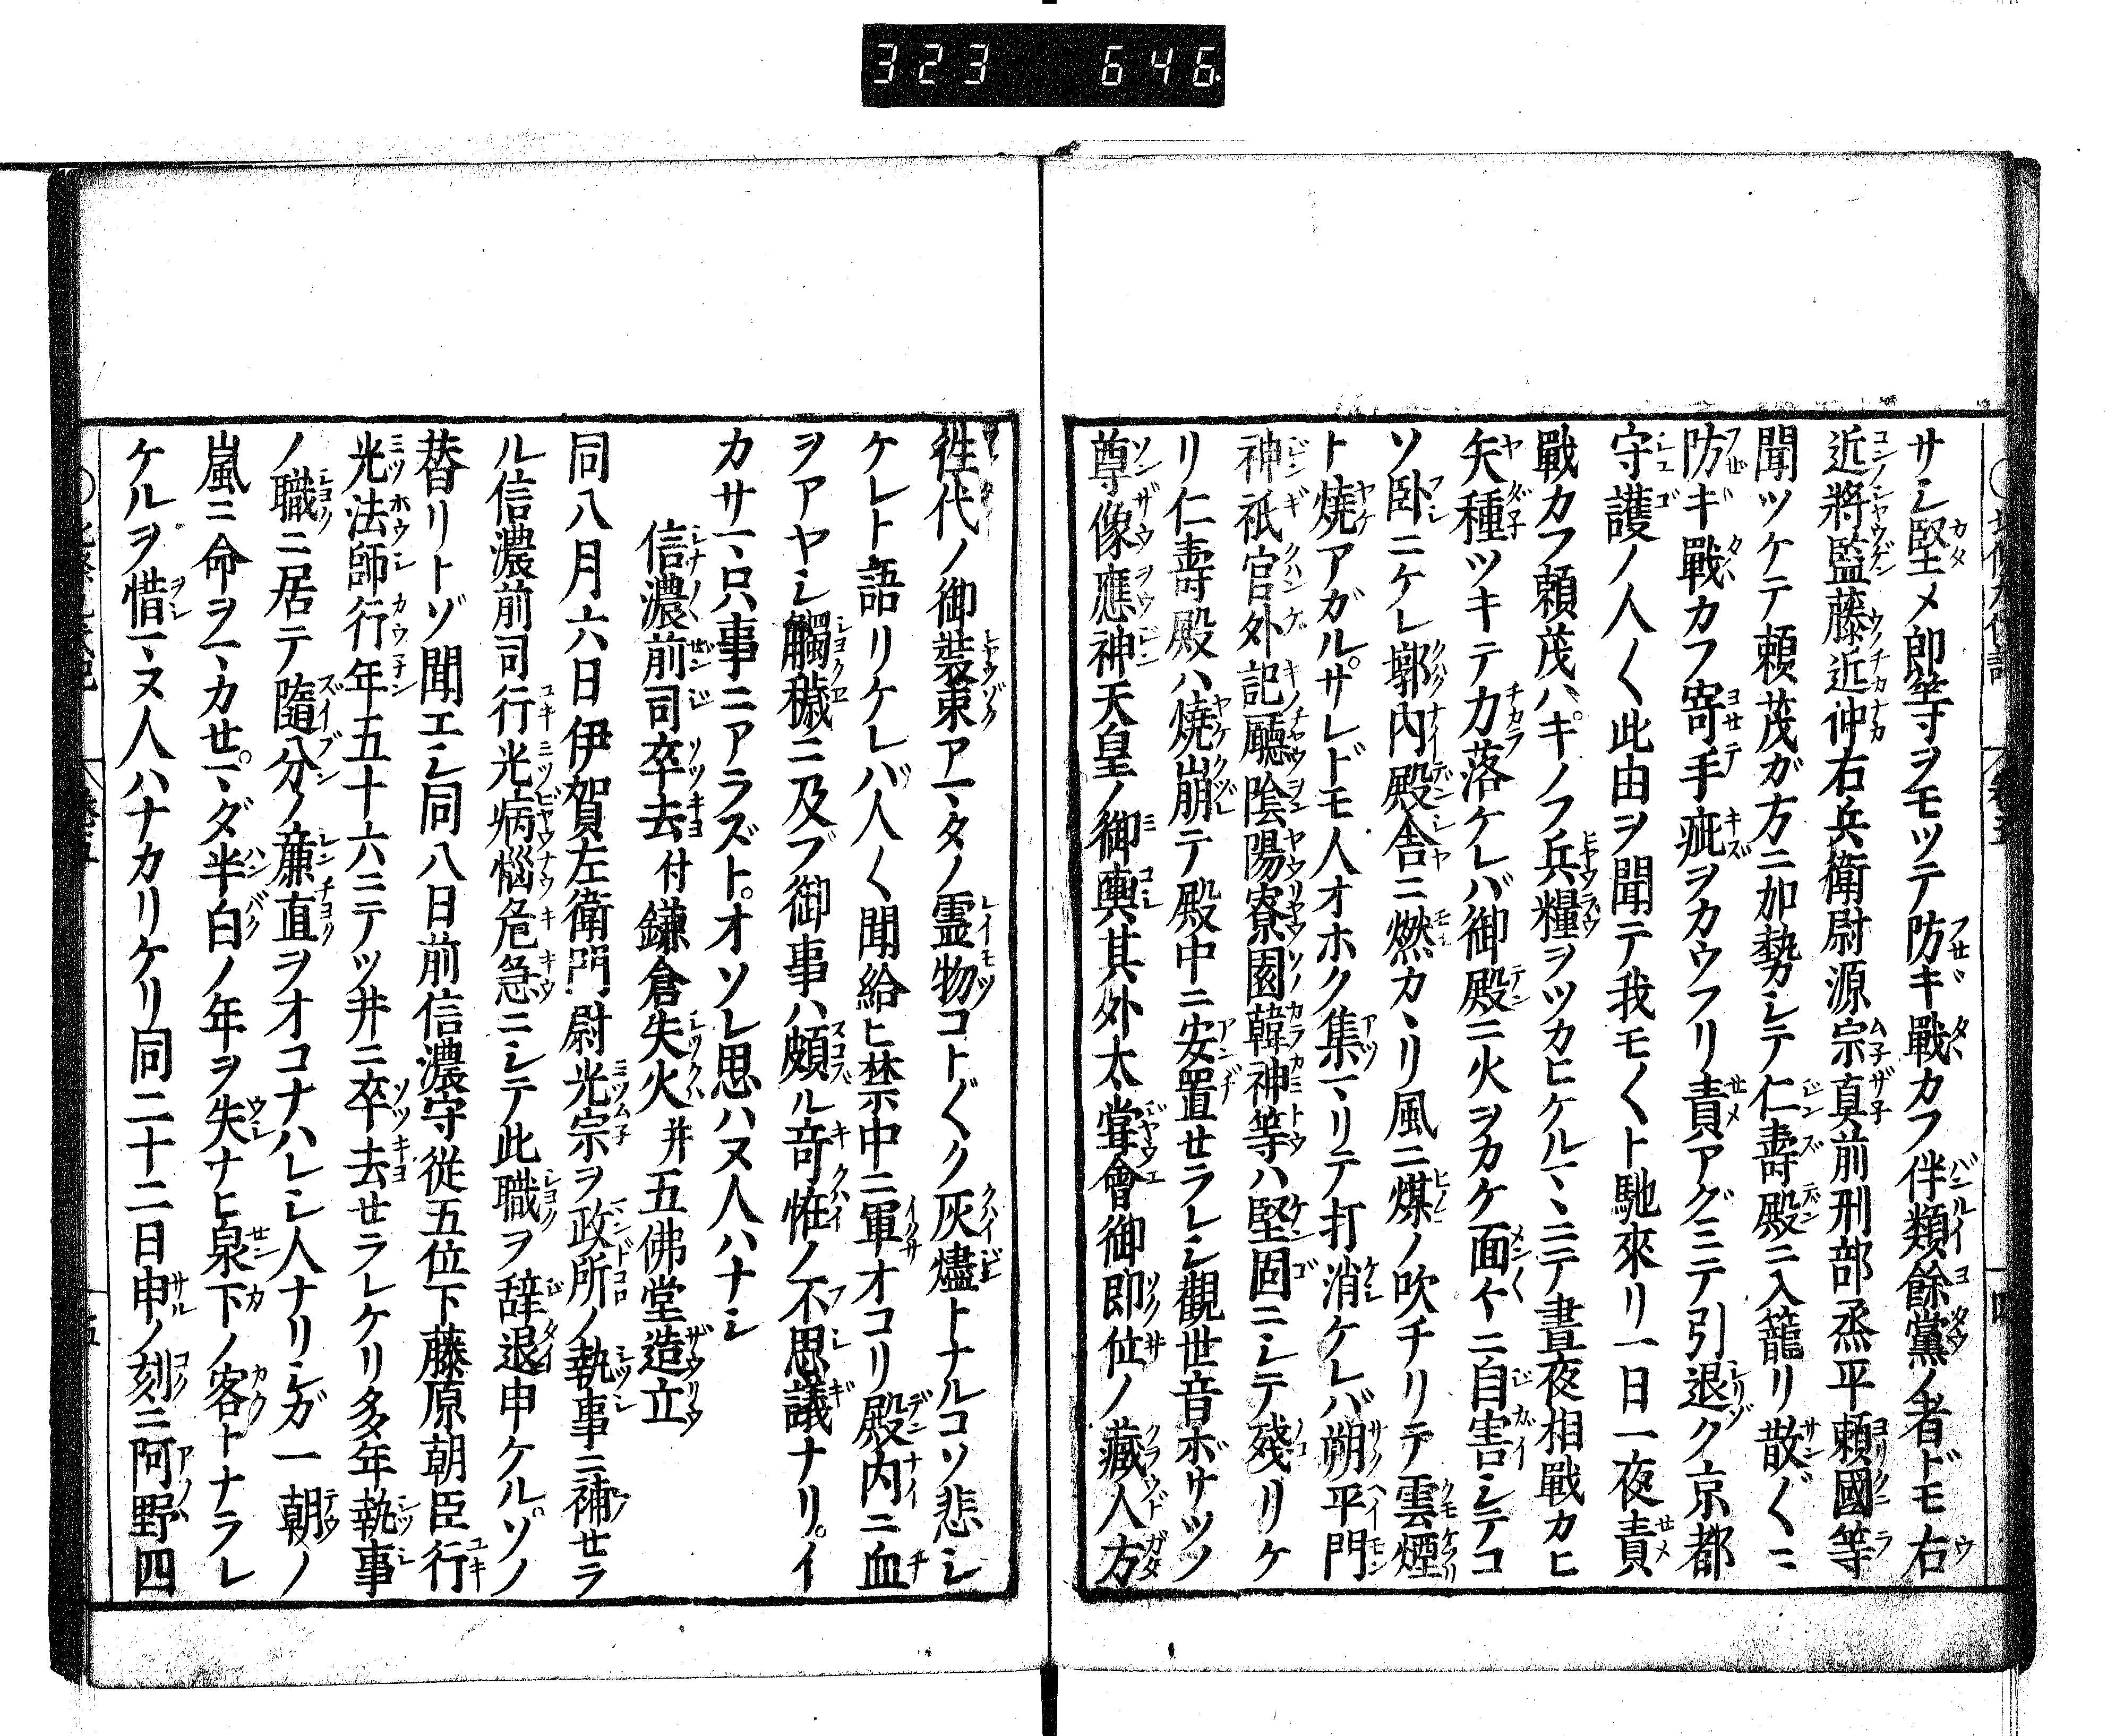 323 646
サシ堅メ郎等ヲモツテ防キ戰カフ伴類餘黨ノ者ドモ右
近將監藤近仲右兵衛尉源宗真前刑部烝平頼國等
聞ツケテ頼茂ガ方ニ加勢シテ仁壽殿ニ入籠リ散〲ニ
防ギ戰カフ寄手疵ヲカウフリ責アグミテ引退ク京都
守護ノ人〱此由ヲ聞テ我モ〱ト馳來リ一日一夜責
戰カフ頼茂ハキノフ兵糧ヲツカヒケルマヽニテ晝夜相戰カヒ
矢種ツキテ力落ケレバ御殿ニ火ヲカケ面〻ニ自害シテコ
ソ卧ニケレ廓内殿舎ニ燃カヽリ風ニ煤ノ吹チリテ雲煙
ト焼アガルサレドモ人オホク集マリテ打消ケレバ朔平門
神祇官外記廳陰陽寮園韓神等ハ堅固ニシテ殘リケ
リ仁壽殿ハ焼崩テ殿中ニ安置セラレシ觀世音ボサツノ
尊像應神天皇ノ御輿其外大甞會御即位ノ藏人方
徃代ノ御裝束アマタノ霊物コト〲ク灰燼トナルコソ悲シ
ケレト語リケレバ人〱聞給ヒ禁中ニ軍オコリ殿内ニ血
ヲアヤシ觸穢ニ及ブ御事ハ頗ル竒恠ノ不思議ナリイ
カサマ只事ニアラズトオソレ思ハヌ人ハナシ
信濃前司卒去付鎌倉失火并五佛堂造立
同八月六日伊賀左衛門尉光宗ヲ政所ノ執事ニ補セラ
ル信濃前司行光病惱危急ニシテ此職ヲ辞退申ケルソノ
替リトゾ聞エシ同八日前信濃守從五位下藤原朝臣行
光法師行年五十六ニテツ井ニ卒去セラレケリ多年執事
ノ職ニ居テ隨分ノ廉直ヲオコナハレシ人ナリシガ一朝ノ
嵐ニ命ヲマカセマダ半白ノ年ヲ失ナヒ泉下ノ客トナラレ
ケルヲ惜マヌ人ハナカリケリ同二十二日申ノ刻ニ阿野四